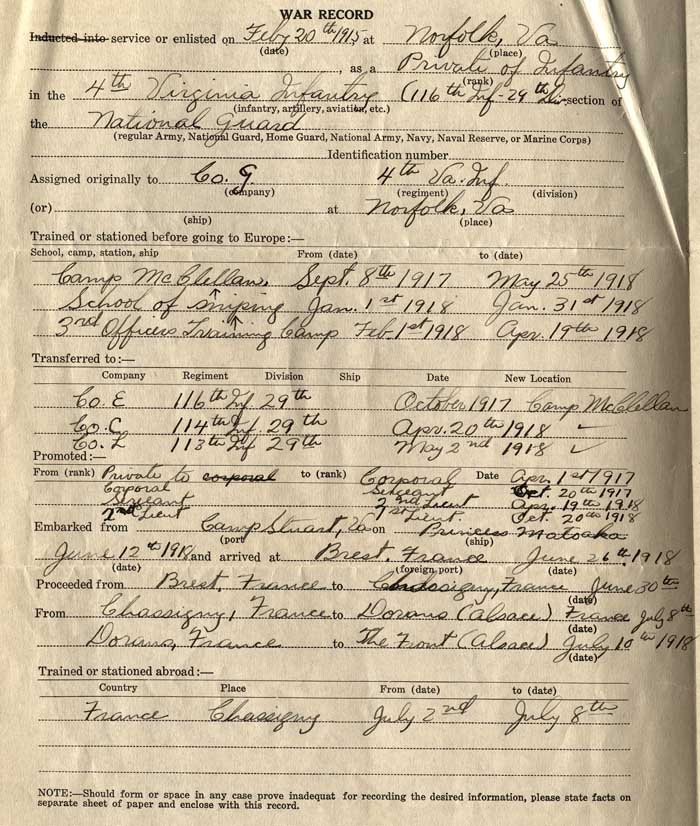 WAR RECORD
Inducted into service or enlisted on Feby 20th 1915 at Norfolk, Va
(date) (place)
, as a Private of Infantry
(rank)
in the 4th Virginia Infantry (116th Inf - 29th Div. section of
(infantry, artillery, aviation, etc.)
the National Guard
(regular Army, National Guard, Home Guard, National Army, Navy, Naval Reserve, or Marine Corps)
Identification number
Assigned originally to Co. G. 4th Va. Inf.
(company) (regiment) (division)
(or) at Norfolk, Va
(ship) (place)
Trained or stationed before going to Europe:—
School, camp, station, ship From (date) to (date)
Camp McClellan, Sept. 8th 1917 May 25th 1918
School of sniping Jan. 1st 1918 Jan. 31st 1918
3rd Officers Training Camp Feb. 1st 1918 Apr. 19th 1918
Transferred to:—
Company Regiment Division Ship Date New Location
Co. E 116th Inf 29th October 1917 Camp McClellan
Co. C 114th Inf. 29th Apr. 20th 1918 "
Co. L 113th Inf 29th May 2nd 1918
Promoted:—
From (rank) Private to corporal to (rank) Corporal Date Apr. 1st 1917
Corporal Sergeant Oct. 20th 1917
Sergeant 2nd Lieut Apr. 19th 1918
2nd Lieut 1st Lieut. Oct. 20th 1918
Embarked from Camp Stuart, Va on Princess Matoaka
(port (ship)
June 12th 1918 and arrived at Brest, France June 26th, 1918
(date) (foreign port) (date)
Proceeded from Brest, France to Chassigny, France June 30th
(date)
From Chassigny, France to Dorans (Alsace) France July 8th
(date)
Dorans, France to The Front (Alsace) July 10th 1918
(date)
Trained or stationed abroad:—
Country Place From (date) to (date)
France Chassigny July 2nd July 8th
NOTE:—Should form or space in any case prove inadequat for recording the desired information, please state facts on
separate sheet of paper and enclose with this record.